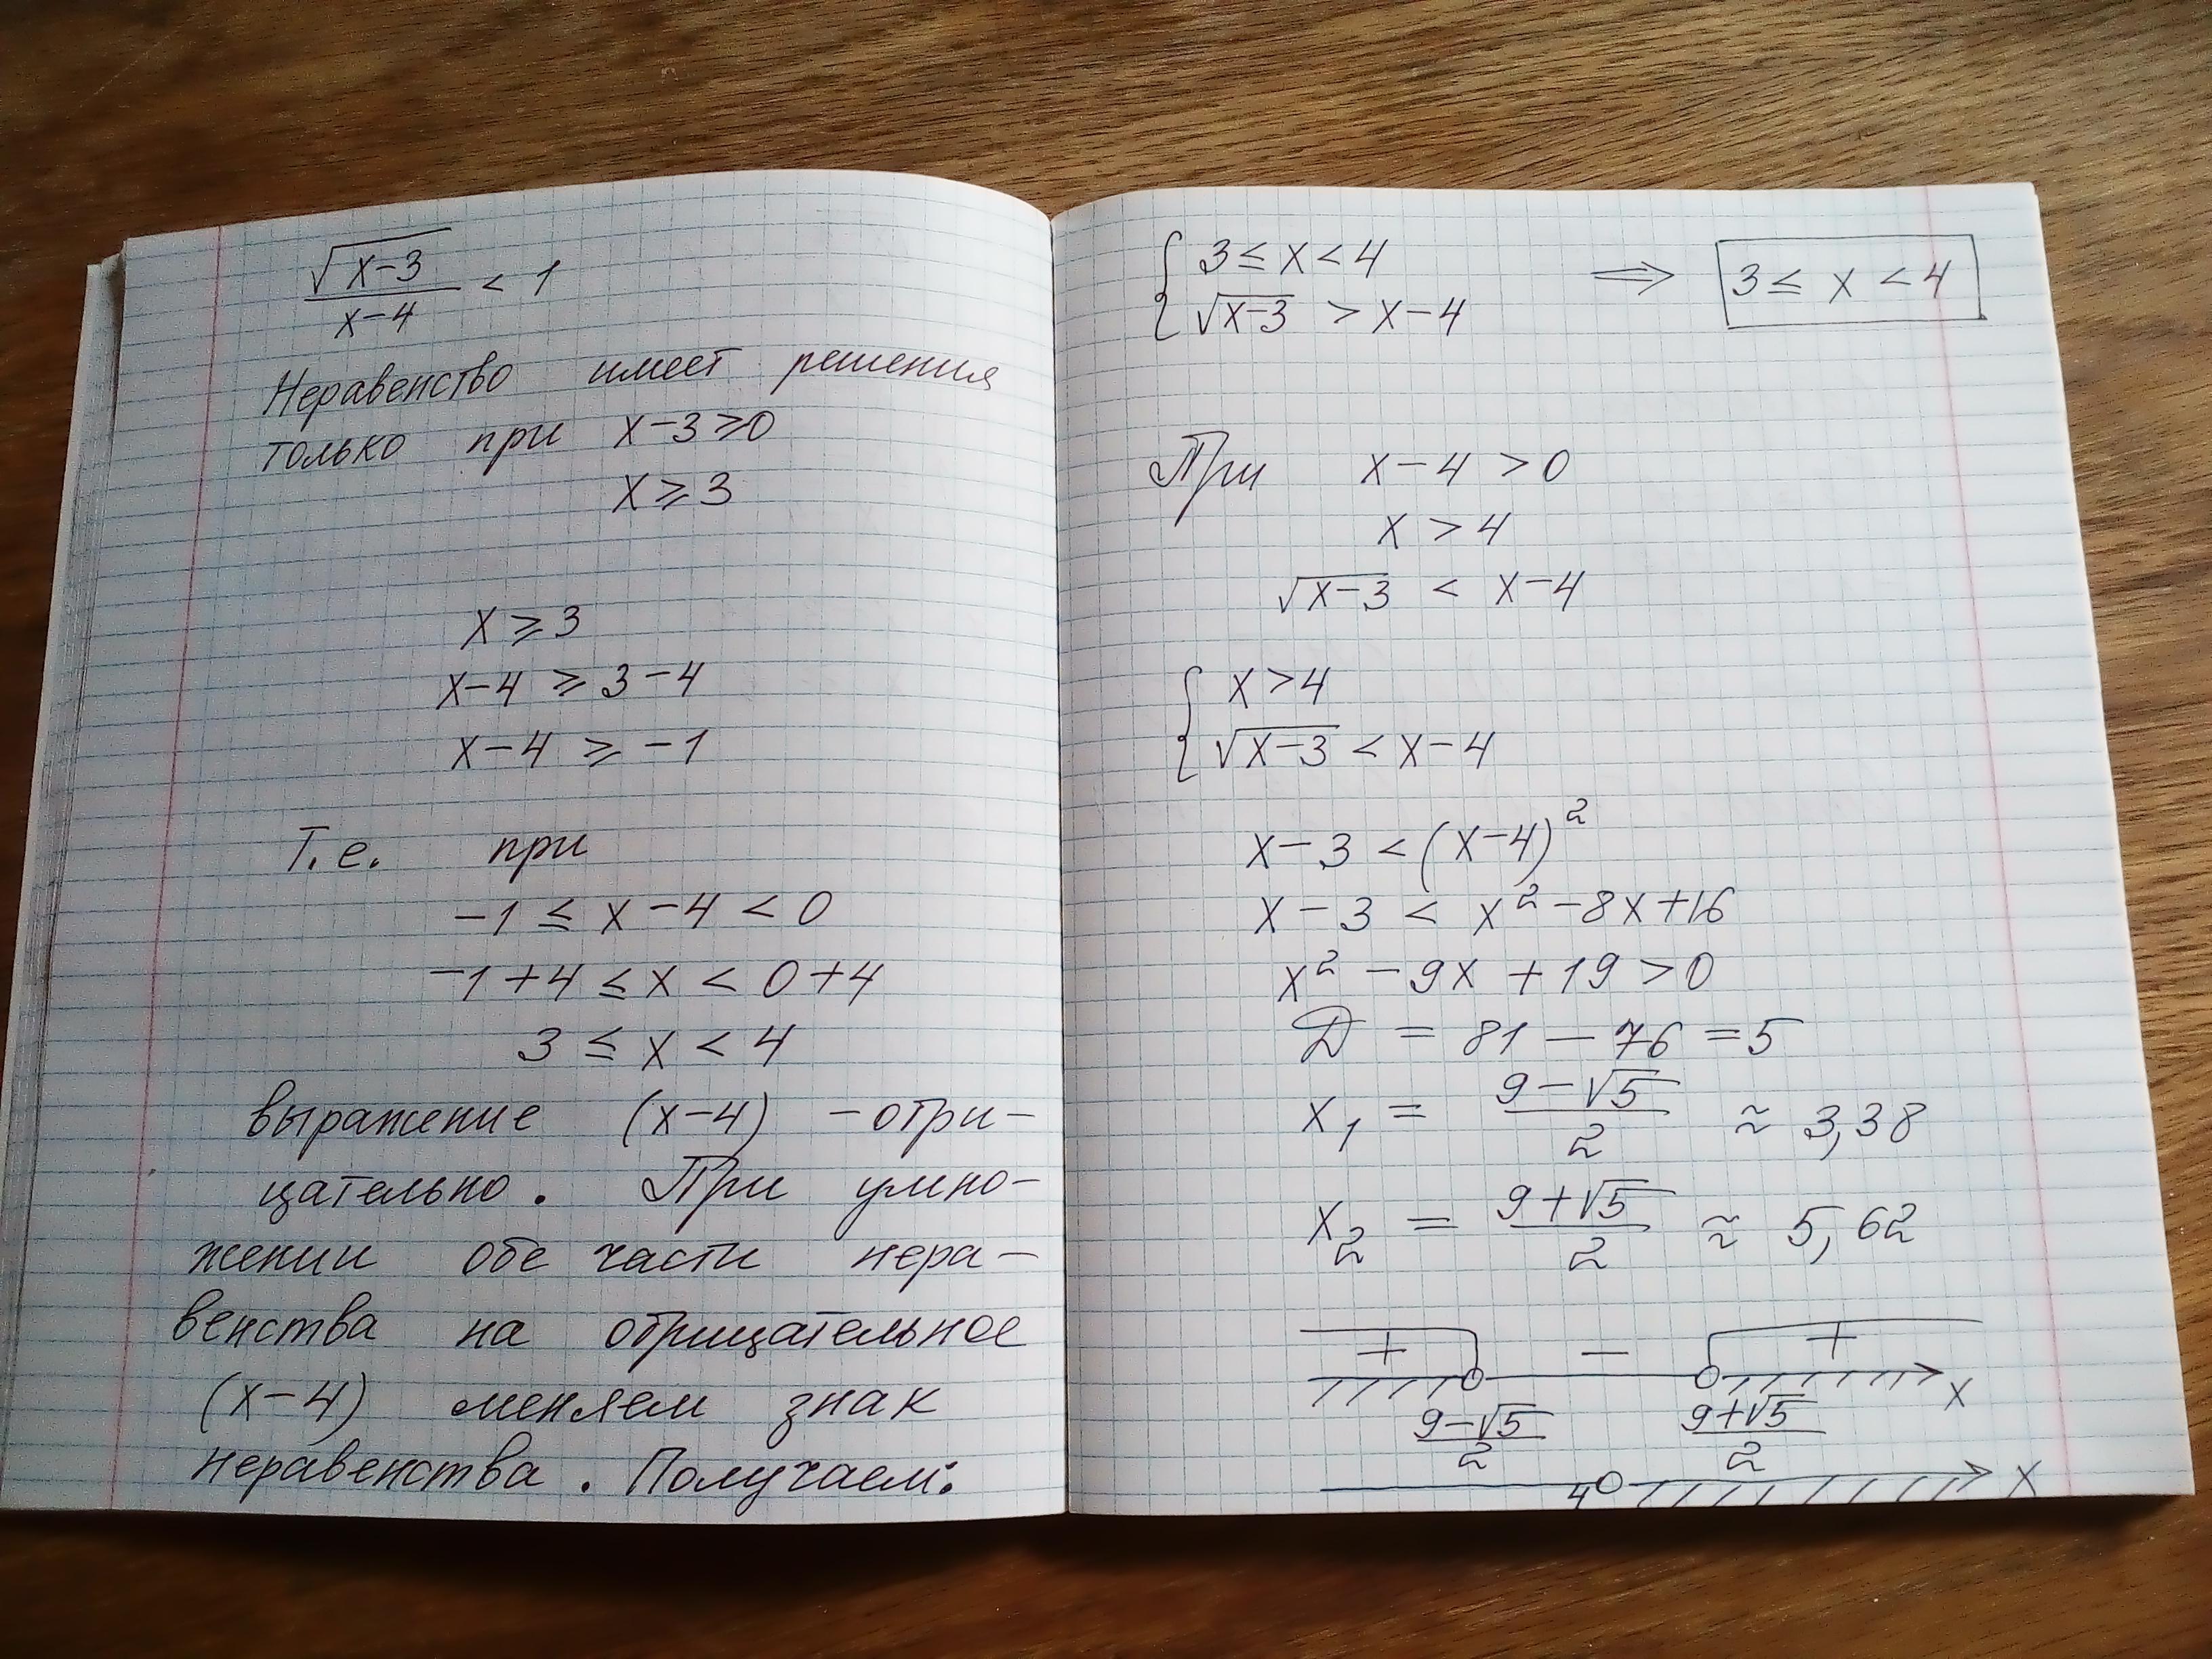 √(x-3)/(x-4) < 1
Неравенство имеет решения
только при x-3≥0
x≥3
x≥3
x-4≥3-4
x-4≥-1
Т.е. при
-1≤x-4<0
-1+4≤x<0+4
3≤x<4
выражение (x-4) -отри-
цательно. При умно-
жении обе части нера-
венства на отрицательное
(x-4) меняем знак
неравенства. Получаем:
{ 3≤x<4
{ √(x-3) > x-4
⟹ 3≤x<4
При x-4>0
x>4
√(x-3) < x-4
{ x>4
{ √(x-3) < x-4
x-3<(x-4)²
x-3<x²-8x+16
x²-9x+19>0
Д=81-76=5
x₁=(9-√5)/2≈3,38
x₂=(9+√5)/2≈5,62
+ - +
x
(9-√5)/2 (9+√5)/2
4 x